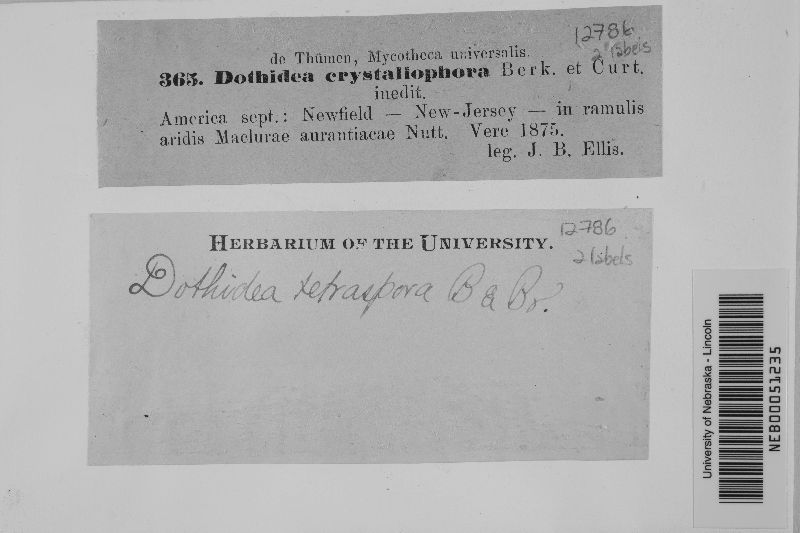 12786
2 labels
de Thümen, Mycotheca universalis.
365. Dothidea crystallophora Berk. et Curt.
inedit.
America sept.: Newfield — New-Jersey — in ramulis
aridis Maclurae aurantiacae Nutt. Vere 1875.
leg. J. B. Ellis.
12786
2 labels
HERBARIUM OF THE UNIVERSITY.
Dothidea tetraspora B & Br.
University of Nebraska - Lincoln
NEB00051235